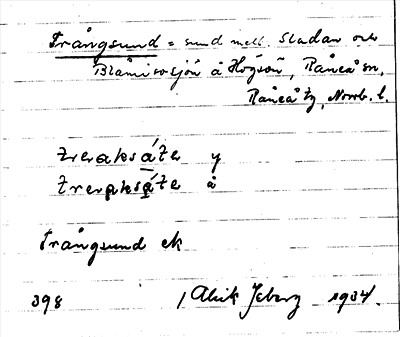 Trångsund = sund mell. Sladan och
Blåmisosjön å Högsön, Råneå sn,
Råneå tg, Norrb. l.
treraksǻte y
treraksǻte å
Trångsund ek
398 / Alrik Joberg 1934.